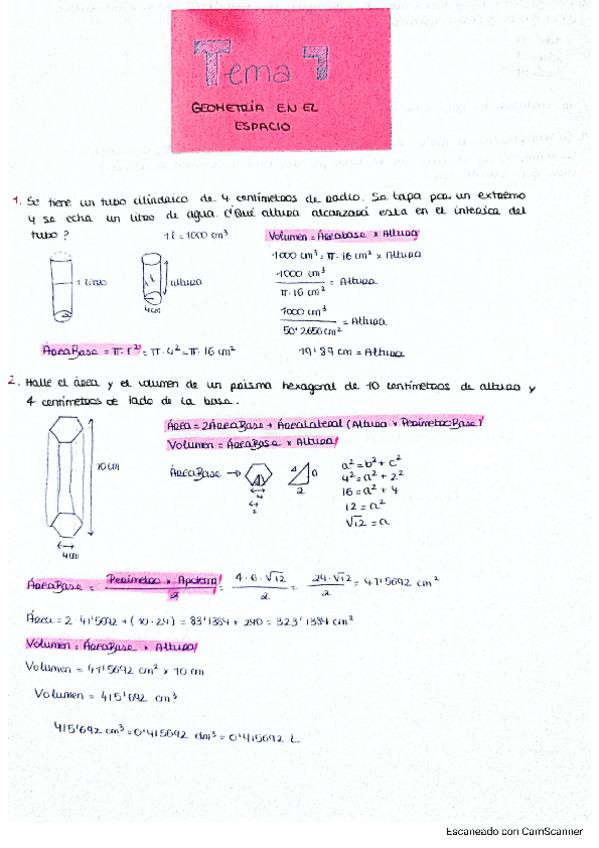 Tema 7
GEOMETRÍA EN EL
ESPACIO
1. Se tiene un tubo cilíndrico de 4 centímetros de radio. Se tapa por un extremo
y se echa un litro de agua. ¿Qué altura alcanzará esta en el interior del
tubo?
1 l = 1000 cm³
Volumen = Áreabase × Altura
1000 cm³ = π · 16 cm² × Altura
1000 cm³ / π · 16 cm² = Altura
1000 cm³ / 50'2656 cm² = Altura
19'89 cm = Altura
1 litro
altura
4cm
ÁreaBase = π · r² = π · 4² = π · 16 cm²
2. Halle el área y el volumen de un prisma hexagonal de 10 centímetros de altura y
4 centímetros de lado de la base.
Área = 2ÁreaBase + ÁreaLateral (Altura × PerímetroBase)
Volumen = ÁreaBase × Altura
10cm
4cm
ÁreaBase →
4
2
4
a
2
a² = b² + c²
4² = a² + 2²
16 = a² + 4
12 = a²
√12 = a
ÁreaBase = Perímetro × Apotema / 2 = 4 · 6 · √12 / 2 = 24 · √12 / 2 = 41'5692 cm²
Área = 2 · 41'5692 + (10 · 24) = 83'1384 + 240 = 323'1384 cm²
Volumen = ÁreaBase × Altura
Volumen = 41'5692 cm² × 10 cm
Volumen = 415'692 cm³
415'692 cm³ = 0'415692 dm³ = 0'415692 L.
Escaneado con CamScanner